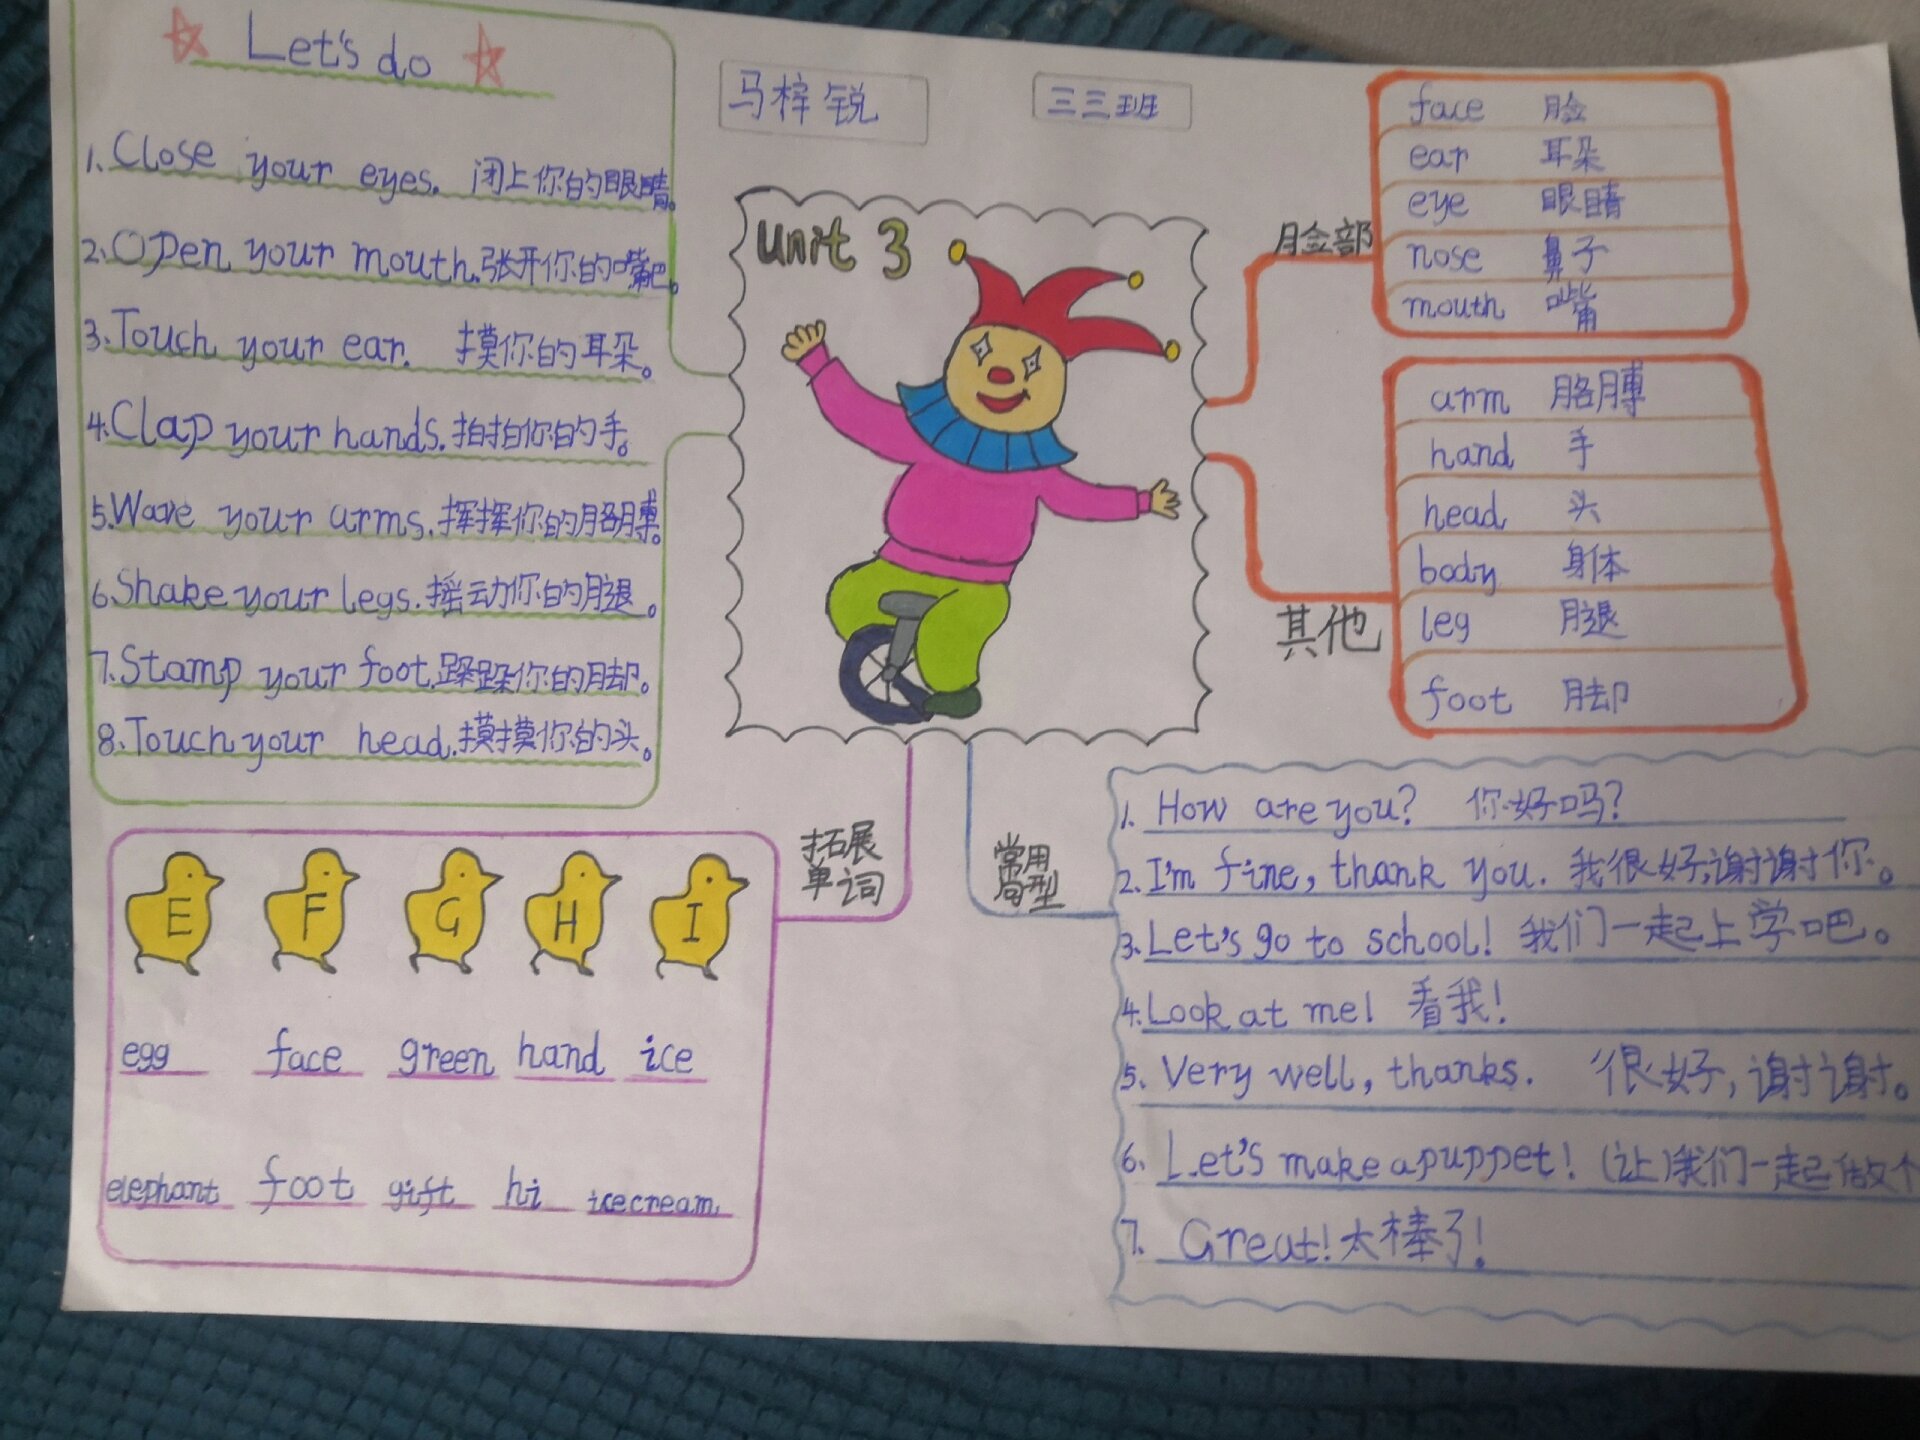 Let's do
1. Close your eyes. 闭上你的眼睛。
2. Open your mouth. 张开你的嘴巴。
3. Touch your ear. 摸你的耳朵。
4. Clap your hands. 拍拍你的手。
5. Wave your arms. 挥挥你的胳膊。
6. Shake your legs. 摇动你的腿。
7. Stamp your foot. 跺跺你的脚。
8. Touch your head. 摸摸你的头。
马梓锐
三三班
Unit 3
脸部
face 脸
ear 耳朵
eye 眼睛
nose 鼻子
mouth 嘴
其他
arm 胳膊
hand 手
head 头
body 身体
leg 腿
foot 脚
拓展
单词
E F G H I
egg face green hand ice
elephant foot gift hi icecream
常用
句型
1. How are you? 你好吗?
2. I'm fine, thank you. 我很好,谢谢你。
3. Let's go to school! 我们一起上学吧。
4. Look at me! 看我!
5. Very well, thanks. 很好,谢谢。
6. Let's make a puppet! (让)我们一起做个
7. Great! 太棒了!